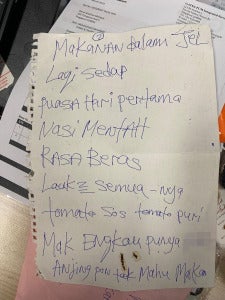 MakaNaN dalam Jel
Lagi Sedap
Puasa Hari pertama
Nasi Mentah
RASA Beras
Lauk2 semua-nya
tomato sos tomato puri
Mak Engkau punya
Anjing pun tak Mahu Makan